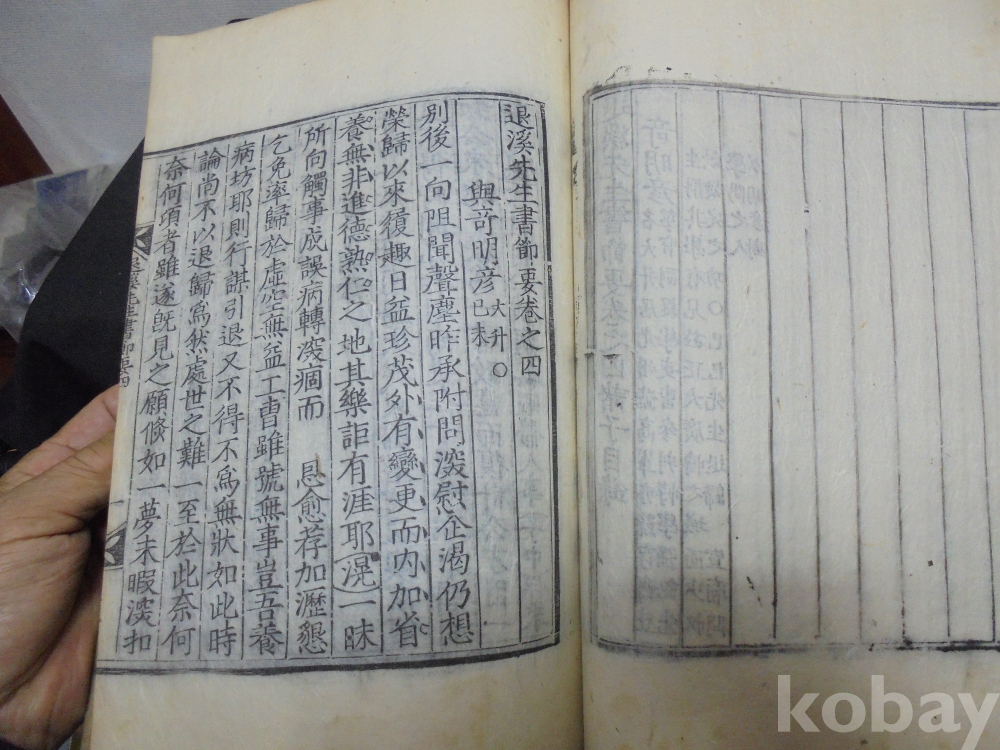 退溪先生書節要卷之四
與竒明彦 大升○
己未
別後一向阻聞聲塵昨承附問深慰企渴仍想
榮歸以來履趣日益珍茂外有變更而内加省
養無非進德熟仁之地其樂詎有涯耶滉一味
所向觸事成誤病轉深痼而 恩愈荐加瀝懇
乞免率歸於虛空無益工曹雖號無事豈吾養
病坊耶則行謀引退又不得不爲無狀如此時
論尚不以退歸爲然處世之難一至於此奈何
奈何頃者雖遂旣見之願倏如一夢未暇深扣
退溪先生書節要四
一
kobay